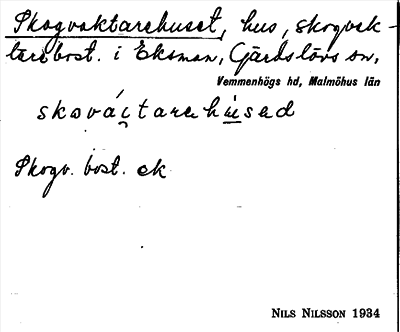 Skogvaktarehuset, hus, skogvak-
tarebost. i Eksman, Gärdslövs sn,
Vemmenhögs hd, Malmöhus län
skováctarehúsəd
Skogv. bost. ek
NILS NILSSON 1934